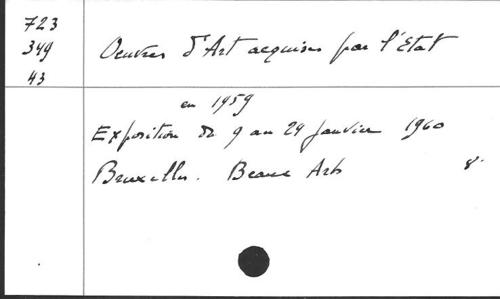 723
349
43
Oeuvres d'Art acquises par l'Etat
en 1959
Exposition du 9 au 24 janvier 1960
Bruxelles. Beaux Arts 8°